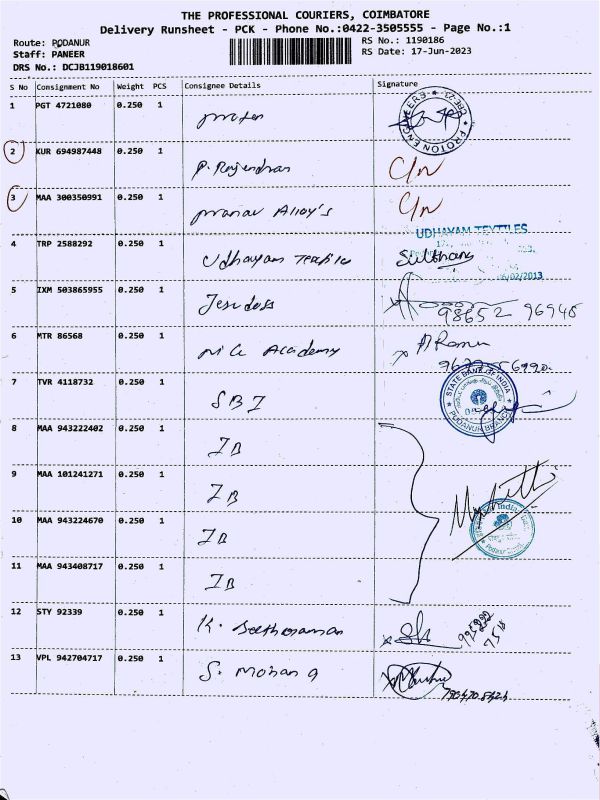 THE PROFESSIONAL COURIERS, COIMBATORE
Delivery Runsheet - PCK - Phone No.:0422-3505555 - Page No.:1
Route: PODANUR
RS No.: 1190186
Staff: PANEER
RS Date: 17-Jun-2023
DRS No.: DCJB119018601
S No Consignment No Weight PCS Consignee Details Signature
1 PGT 4721080 0.250 1
PROTON ENGINEERS
2 KUR 694987448 0.250 1 P. Rajendran C/N
3 MAA 300350991 0.250 1 Pranav Alloy's C/N
UDHAYAM TEXTILES
4 TRP 2588292 0.250 1 Udhayam Textiles
5 IXM 503865955 0.250 1 Jesudoss
98652 96945
6 MTR 86568 0.250 1 Academy
STATE BANK OF INDIA
PODANUR BRANCH
7 TVR 4118732 0.250 1 SBI
8 MAA 943222402 0.250 1 IB
9 MAA 101241271 0.250 1 IB
10 MAA 943224670 0.250 1 IB
11 MAA 943408717 0.250 1 IB
12 STY 92339 0.250 1 K. Seetharaman
13 VPL 942704717 0.250 1 S. Mohan